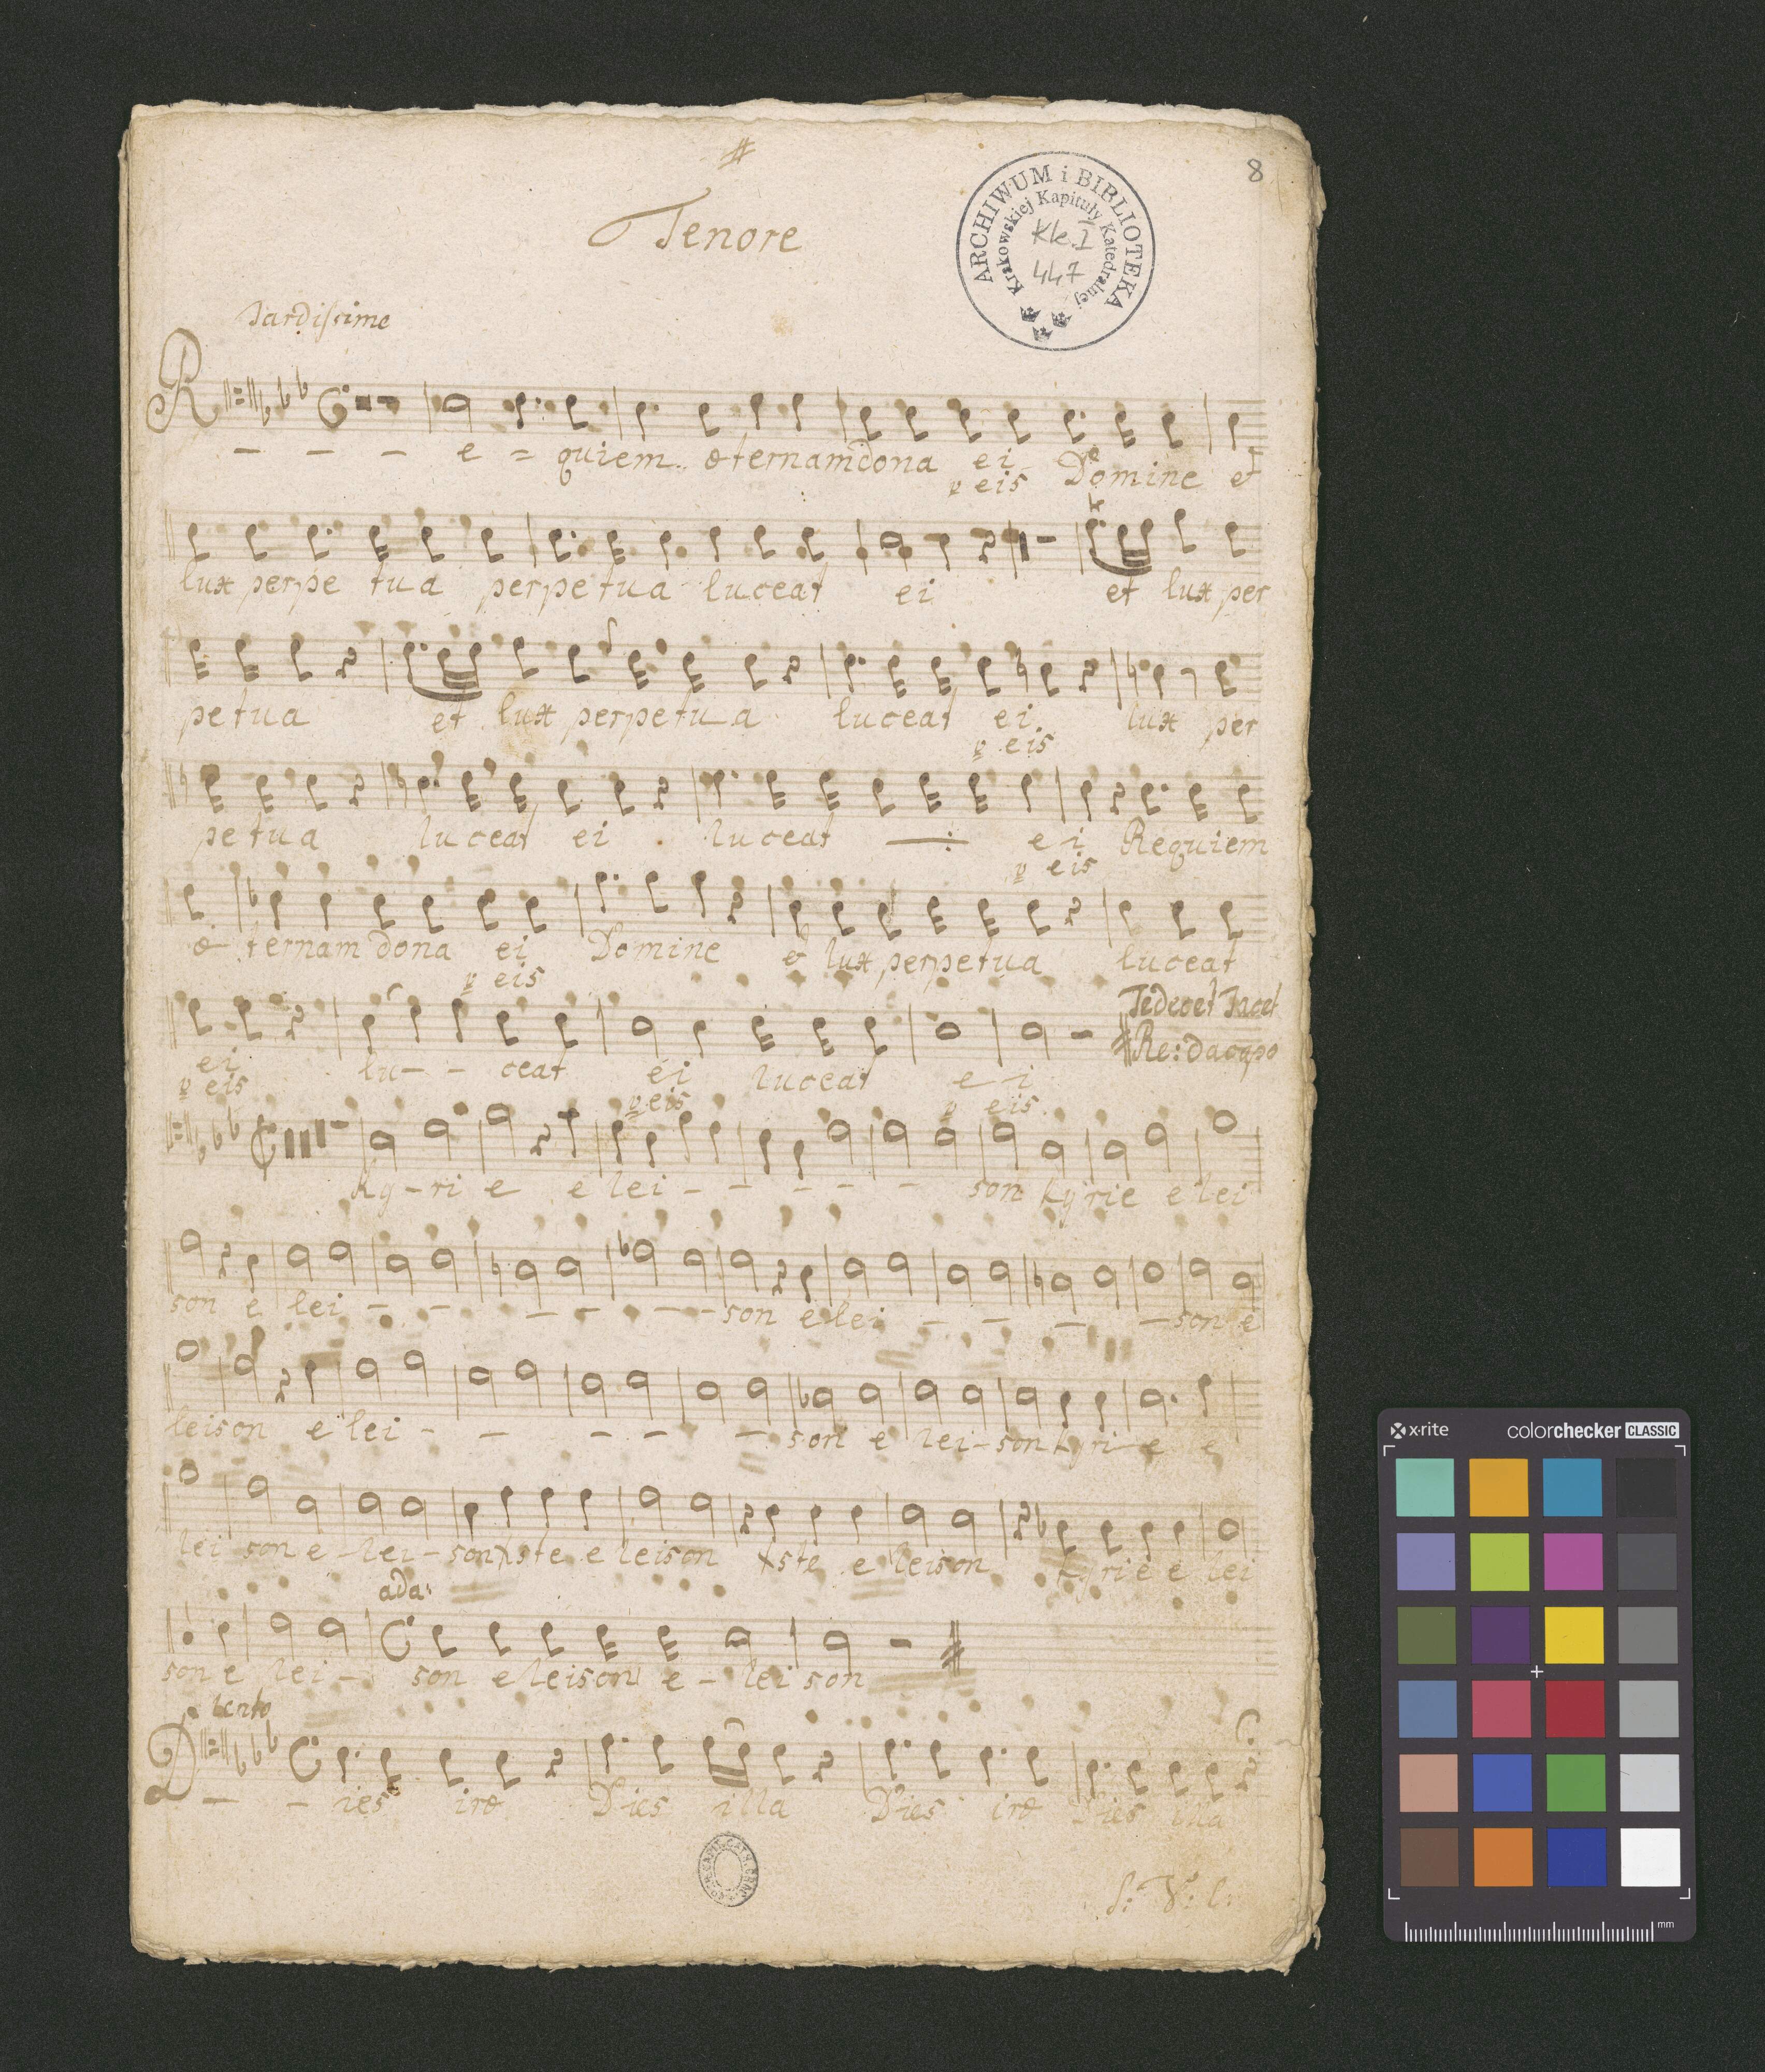 #
8
Tenore
ARCHIWUM i BIBLIOTEKA
Krakowskiej Kapituły Katedralnej
Kk.I
447
Tardissime
R - - - e = quiem æternam dona ei Domine et
v eis
lux perpe tua perpetua luceat ei et lux per
petua et lux perpetu a luceat ei lux per
v eis
petua luceat ei luceat ei Requiem
v eis
æ ternam dona ei Domine et lux perpetua luceat
v eis
Te decet Tacet
Re: da capo
ei lu - - ceat ei luceat e i
v eis v eis v eis
Ky - ri e e lei - - - - - son kyrie e lei
son e lei - - - - - - son e lei - - - - son e
leison e lei - - - - - son e lei - son kyri e e
lei son e - lei - son Xste e leison Xste e leison kyrie e lei
ada:
son e lei - son e leison e - lei son
lento
D - - ies iræ Dies illa Dies iræ Dies illa
x·rite
colorchecker CLASSIC
mm